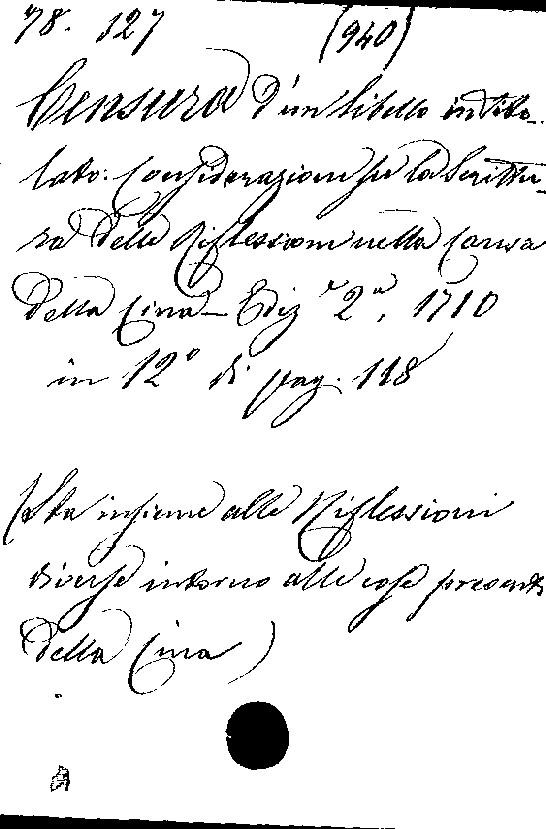 78. 127 (940)
Censura d'un libello intito-
lato: Considerazioni su la Scrittu-
ra delle Riflessioni nella Causa
della Cina — Ediz.e 2a, 1710
in 12° di pag. 118
(Sta insieme alle Riflessioni
diverse intorno alle cose presenti
della Cina)